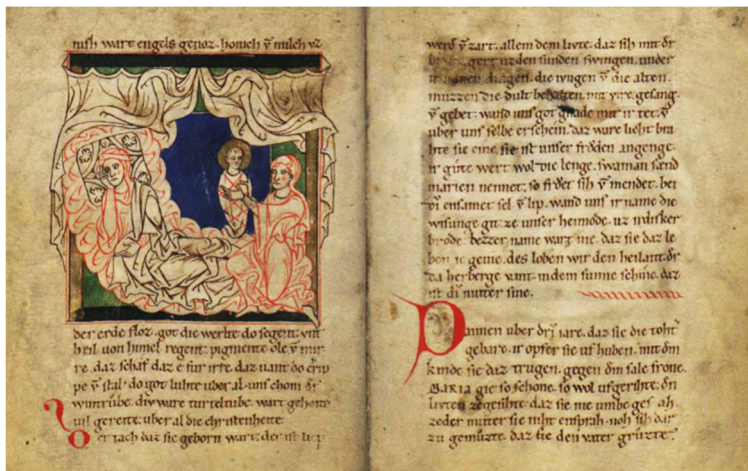 nish wart engels genoz. honich v̄ milch vz
der erde floz. got die werlte do segent. vnt
heil von himel. regent. pigmente ole v̄ mir-
re. daz schaf daz e fur irte. daz vant do
pe v̄ stal. do got luhte vbor al. uns chom
wintrube. div ware turteltube. wart gehort
uber al die christenheite.
er tach daz sie geborn wart. der ist
21
werd v̄ zart. allem dem livte. daz sih mit
gert uz den sunden swingen. under
magen. die ivngen v̄ die alten.
muzzen die dult behalten. mit gesang
v̄ gebet. wand uns got gnade mit ir tet. v̄
vber uns selbe erschein. daz ware lieht bra
hte sie eine. sie ist unser fröden angenge.
ir gute wert wol die lenge. swa man sand
marien nennet. so sih v̄ mendet. bei
ensamet sel v̄ lip. wand uns ir name die
wisunge git. ze unser heimode. uz irdisker
brode. bezzer name wart nie. daz sie daz le
ben ie gevie. des loben wir den heilant.
da herberge vant. in dem sunne schine. daz
ist muter sine.
Dannen uber driv iare. daz sie die toht
gebare. ir opfer sie uf huben. mit dem
kinde sie daz trugen. gegen dem sale frone.
MARIA gie so schone. so wol ufgerihte.
livten zegesihte. daz sie nie umbe gesah.
zeder muter sie niht ensprah. noh sih dar
zu gemuzte. daz sie den vater gruzte.